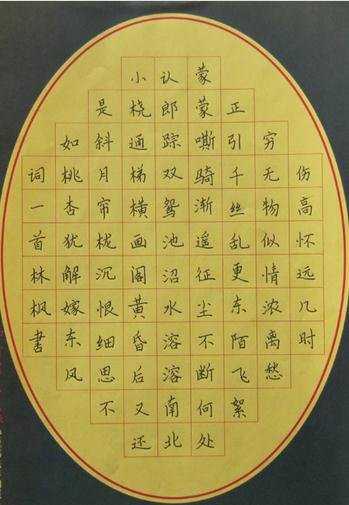 伤高怀远几时
穷无物似情浓离愁
正引千丝乱更东陌飞絮
蒙蒙嘶骑渐遥征尘不断何处
认郎踪双鸳池沼水溶溶南北
小桡通梯横画阁黄昏后又还
是斜月帘栊沉恨细思不
如桃杏犹解嫁东风
词一首林枫书